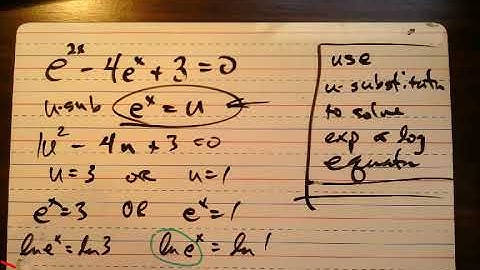 e^{2x} - 4e^x + 3 = 0
u-sub e^x = u ←
1u^2 - 4u + 3 = 0
u = 3 OR u = 1
e^x = 3 OR e^x = 1
ln e^x = ln 3 ln e^x = ln 1
use
u-substitutn
to solve
exp & log
equatn